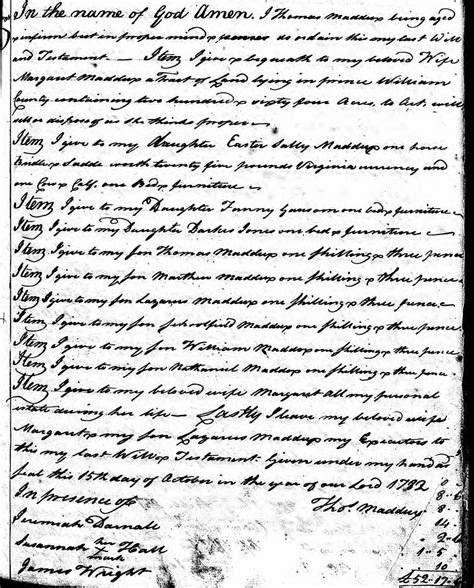 In the name of God Amen. I Thomas Maddux being aged
infirm but in proper mind & do ordain this my last Will
and Testament. — Item I give & bequeath to my beloved Wife
Margaret Maddux a Tract of Land lying in prince William
County containing two hundred & sixty four Acres, to Act,
or dispose of as she thinks proper
Item I give to my Daughter Easter Sally Maddux one horse
Bridle & Sadde worth twenty five pounds Virginia currency and
one Cow & Calf. one Bed & furniture
Item I give to my Daughter Fanny one bed & furniture
Item I give to my Daughter Darkes Jones one bed & furniture
Item I give to my son Thomas Maddux one shilling & three pence
Item I give to my son Matthew Maddux one shilling & three pence
Item I give to my son Lazarus Maddux one shilling & three pence
Item I give to my son Schoolfield Maddux one shilling & three pence
Item I give to my son William Maddox one shilling & three pence
Item I give to my son Nathaniel Maddox one shilling & three pence
Item I give to my beloved wife Margaret all my personal
estate during her life — Lastly I leave my beloved wife
Margaret & my son Lazarus Maddux my Executors to
this my last Will & Testament. Given under my hand &
seal this 15th day of October in the year of our Lord 1782
In presence of Thos. Maddux
Jeremiah Darnall
Susannah her mark Hall
James Wright
£52.17.